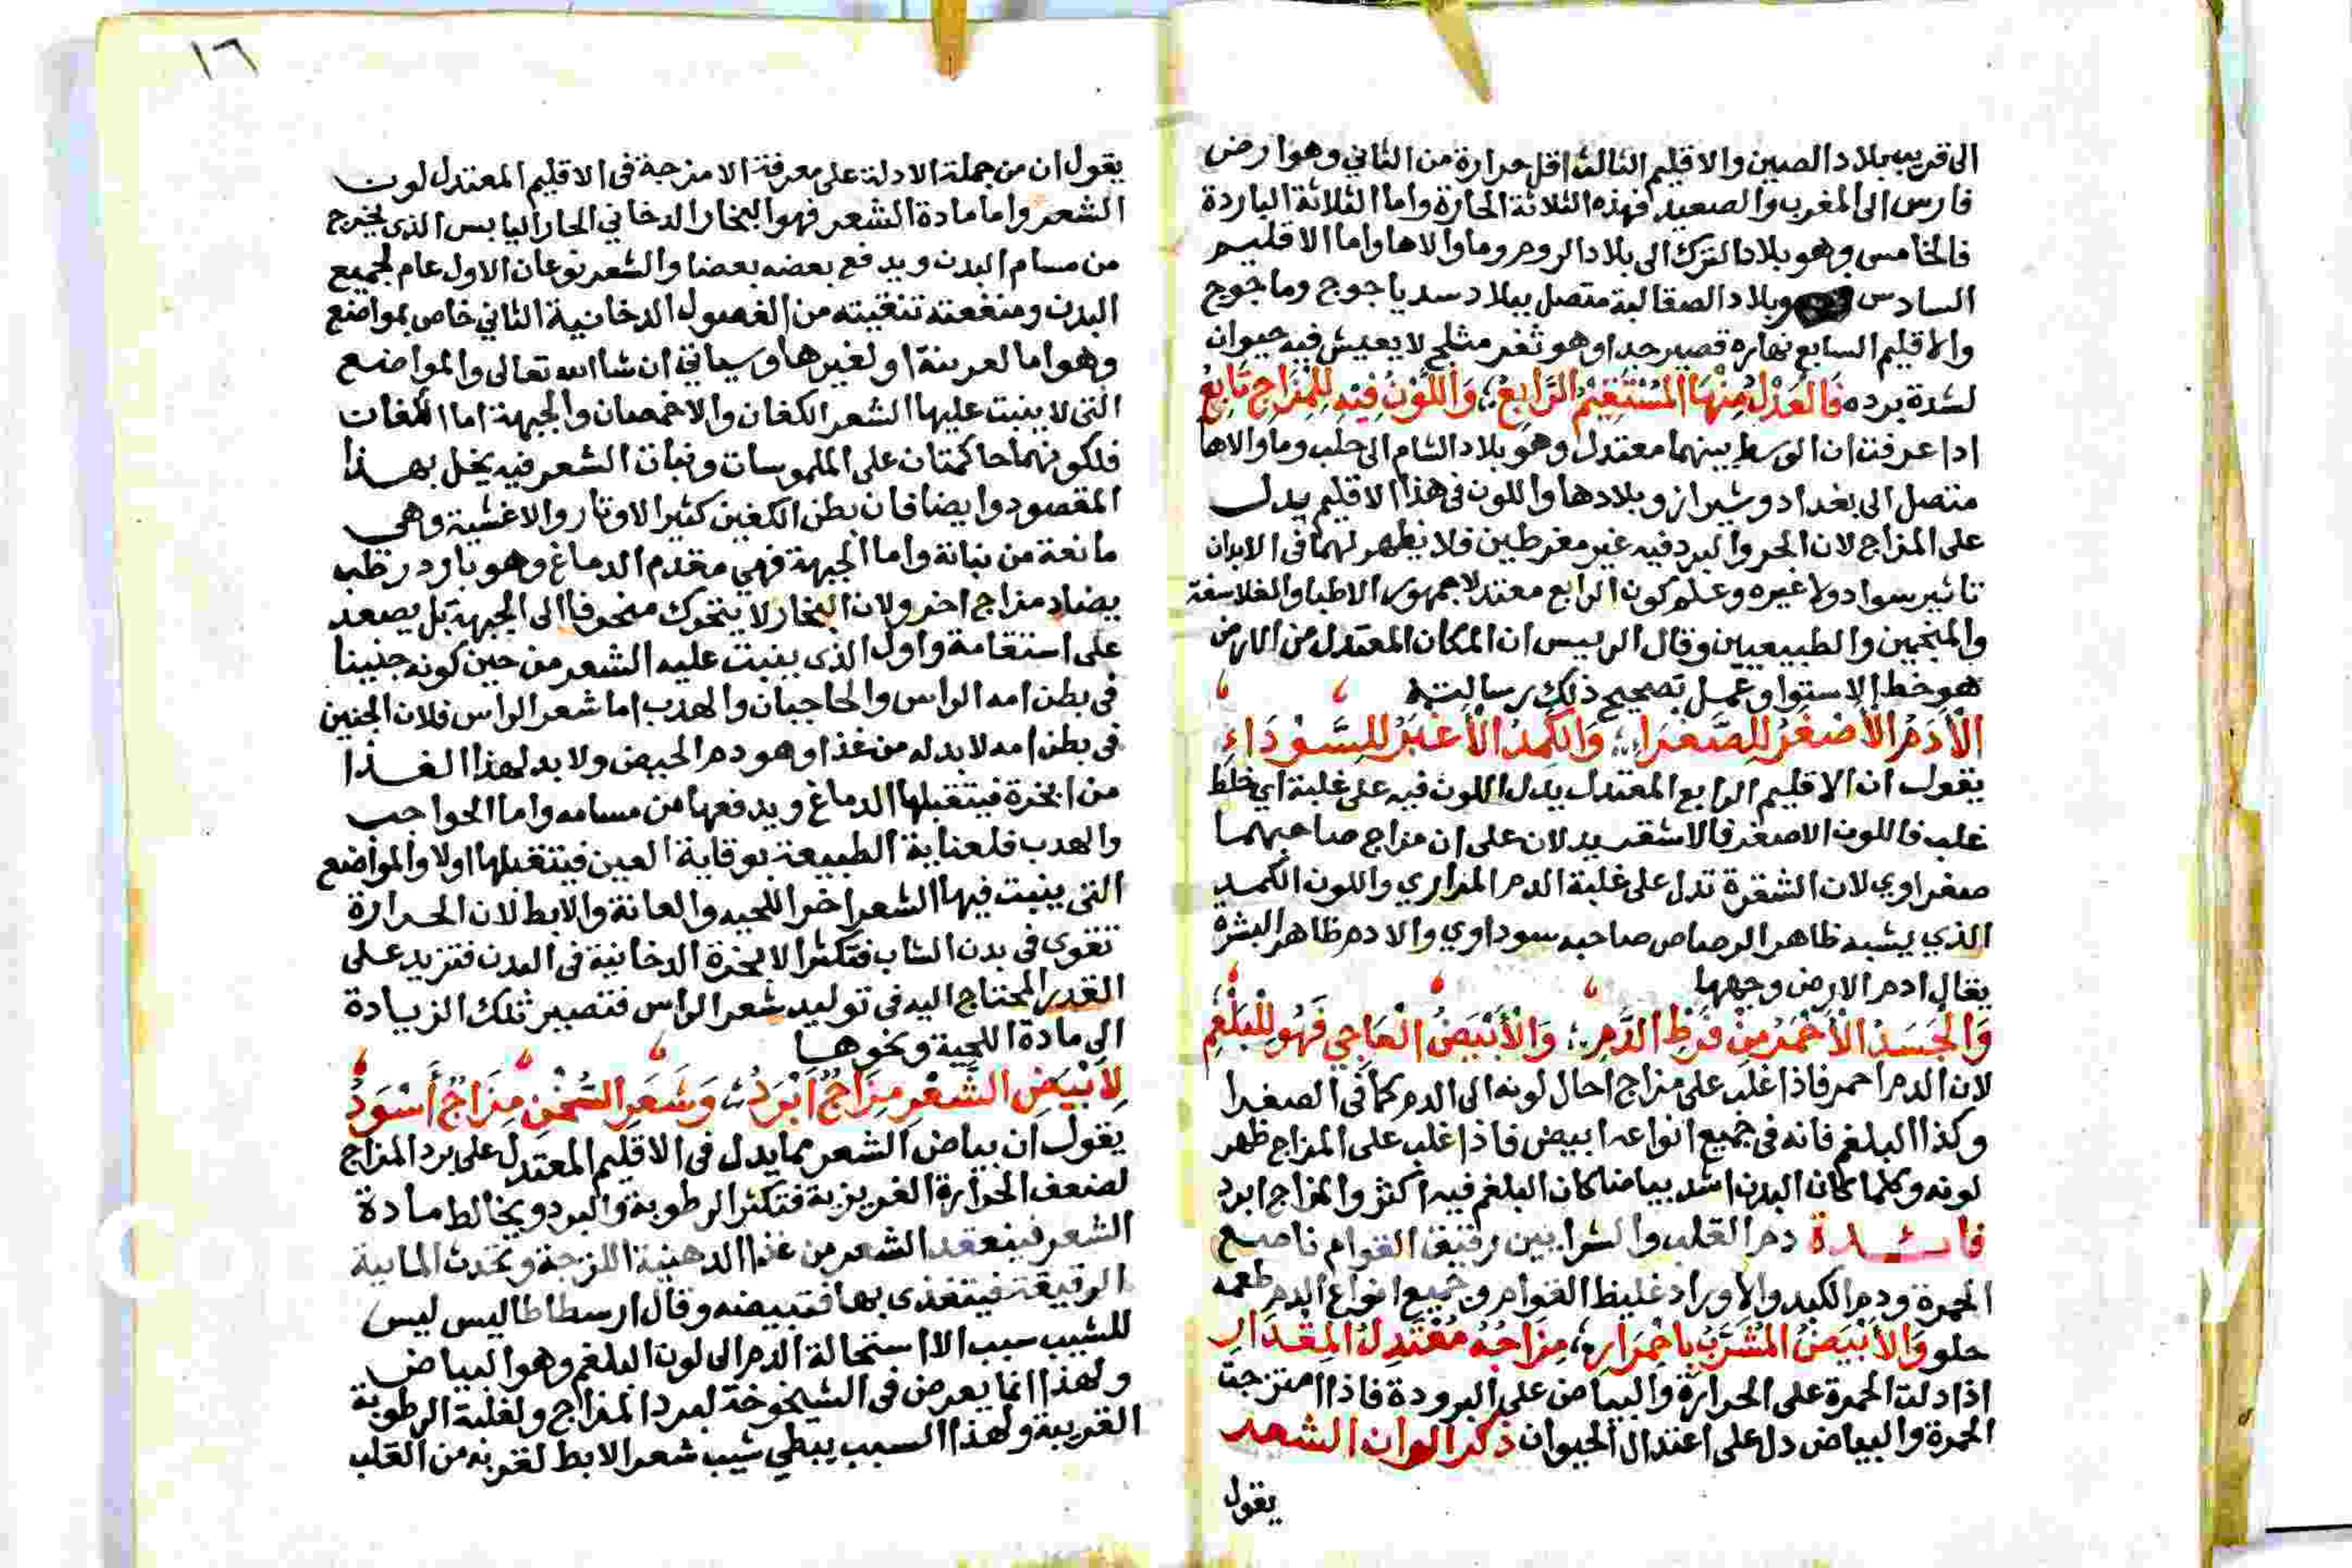 الى قريب بلاد الصين والاقليم الثالث اقل حرارة من الثاني وهو ارض
فارس الى المغرب والصعيد فهذه الثلاثة الحارة واما الثلاثة الباردة
فالخامس وهو بلاد الترك الى بلاد الروم وما والاها واما الاقليم
السادس وبلاد الصقالبة متصل ببلاد سد ياجوج وماجوج
والاقليم السابع نهاره قصير جدا وهو ثغر مثلج لا يعيش فيه حيوان
لشدة برده فَالعَدْلُ مِنْهَا المُسْتَقِيْمُ الرَّابِعُ وَاللَّوْنُ فِيْهِ لِلْمِزَاجِ تَابِعُ
اذا عرفت ان الوسط بينهما معتدل وهو بلاد الشام الى حلب وما والاها
متصل الى بغداد وشيراز وبلادها واللون في هذا الاقليم يدل
على المزاج لان الحر والبرد فيه غير مفرطين فلا يظهر لهما في الابدان
تاثير سواد ولا غيره وعلم كون الرابع معتدلا جمهور الاطبا والفلاسفة
والمنجمين والطبيعيين وقال الرييس ان المكان المعتدل من الارض
هو خط الاستوا وعمل بتصحيح ذلك رسالته
الْأَدَمُ الأَصْفَرُ لِلصَّفْرَاءِ وَالكَمِدُ الْأَغْبَرُ لِلسَّوْدَاءِ
يقول ان الاقليم الرابع المعتدل يدل اللون فيه على غلبة اي خلط
غلب فاللون الاصفر فالاشقر يدلان على ان مزاج صاحبهما
صفراوي لان الشقرة تدل على غلبة الدم المراري واللون الكمد
الذي يشبه ظاهر الرصاص صاحبه سوداوي والادم ظاهر البشره
يقال ادم الارض وجهها
وَالْجَسَدُ الْأَحْمَرُ مِنْ فَرْطِ الدَّمِ وَالْأَبْيَضُ الْعَاجِي فَهُو لِلْبَلْغَمِ
لان الدم احمر فاذا غلب على مزاج احال لونه الى الدم كما في الصفرا
وكذا البلغم فانه في جميع انواعه ابيض فاذا غلب على المزاج ظهر
لونه وكلما كان البدن اشد بياضا كان البلغم فيه اكثر والمزاج ابرد
فائدة دم القلب والشرايين رقيق القوام ناصع
الحمرة ودم الكبد والاوراد غليظ القوام وجميع انواع الدم طعمه
حلو وَالأَبْيَضُ المُشْرَبُ بِاحْمِرَارِ مِزَاجُهُ مُعْتَدِلُ المِقْدَارِ
اذا دلت الحمرة على الحرارة والبياض على البرودة فاذا امتزجت
الحمرة والبياض دل على اعتدال الحيوان ذكر الوان الشعر
يقول
١٦
يقول ان من جملة الادلة على معرفة الامزجة في الاقليم المعتدل لون
الشعر واما مادة الشعر فهو البخار الدخاني الحار اليابس الذي يخرج
من مسام البدن ويدفع بعضه بعضا والشعر نوعان الاول عام لجميع
البدن ومنفعته تنقيته من الفصول الدخانية الثاني خاص بمواضع
وهو اما لعرينة او لغيرها وسياتي ان شا الله تعالى والمواضع
التي لا ينبت عليها الشعر الكفان والاخمصان والجبهة اما الكفات
فلكونهما حاكمتان على الملموسات ونبات الشعر فيه يخل بهذا
المقصود وايضا فان بطن الكفين كثير الاوتار والاغشية وهي
مانعة من نباته واما الجبهة فهي مقدم الدماغ وهو بارد رطب
يضاد مزاج اخر ولان البخار لا يتحرك منحرفا الى الجبهة بل يصعد
على استقامة واول الذي ينبت عليه الشعر من حين كونه جنينا
في بطن امه الراس والحاجبان والهدب اما شعر الراس فلان الجنين
في بطن امه لا بد له من غذا وهو دم الحيض ولا بد لهذا الغذا
من ابخرة فيتقبلها الدماغ ويدفعها من مسامه واما الحواجب
والهدب فلعناية الطبيعة بوقاية العين فيتقبلها اولا والمواضع
التي ينبت فيها الشعر اخرا اللحيه والعانة والابط لان الحرارة
تقوى في بدن الشاب فتكثر الابخرة الدخانية في البدن فتزيد على
القدر المحتاج اليه في توليد شعر الراس فتصير تلك الزيادة
الى مادة اللحية ونحوها
لِأَبْيَضِ الشَّعْرِ مِزَاجٌ أَبْرَدُ وَشَعَرِ السُّخْنِ مِزَاجٌ أَسْوَدُ
يقول ان بياض الشعر مما يدل في الاقليم المعتدل على برد المزاج
لضعف الحرارة الغريزية فتكثر الرطوبة والبرد ويخالط مادة
الشعر فينعقد الشعر من غذا الدهنية اللزجة وتحدث المايية
الرقيقة فيتغذى بها فتبيضه وقال ارسطاطاليس ليس
للشيب سبب الا استحالة الدم الى لون البلغم وهو البياض
ولهذا انما يعرض في الشيخوخة لبرد المزاج ولغلبة الرطوبة
الغريبة ولهذا السبب يبطي شيب شعر الابط لقربه من القلب